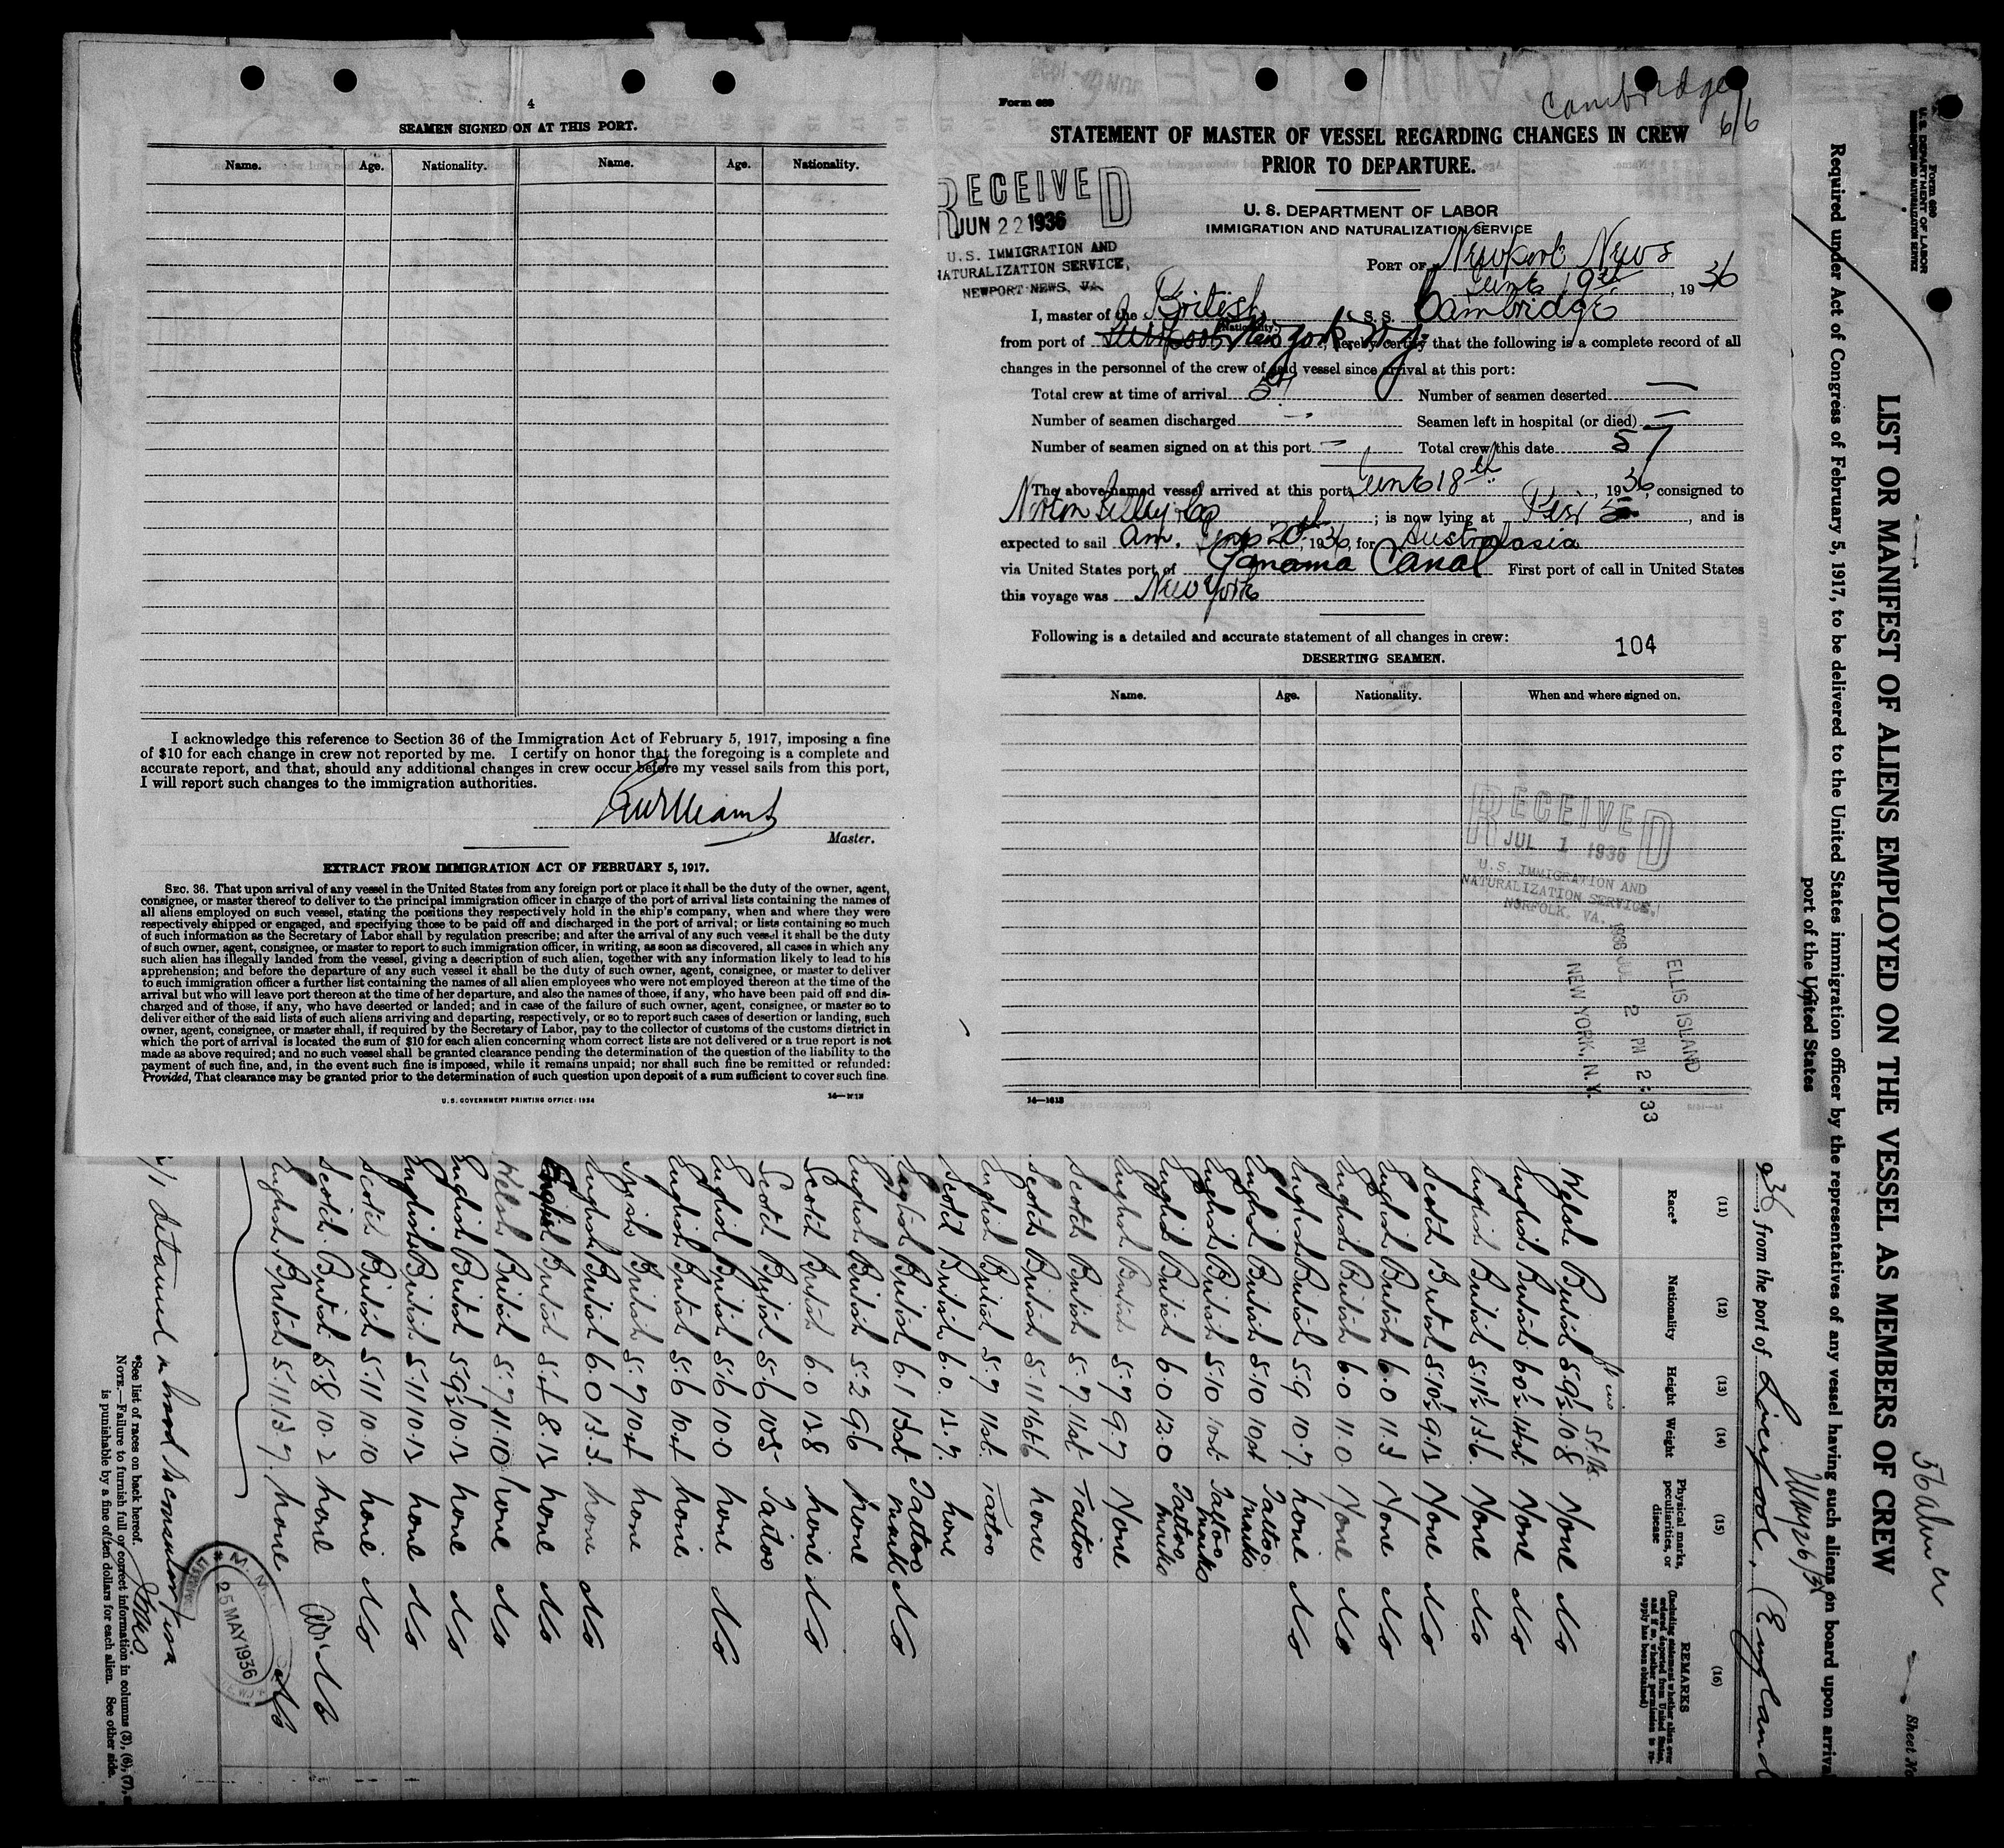 4
SEAMEN SIGNED ON AT THIS PORT.
Name. Age. Nationality. Name. Age. Nationality.
I acknowledge this reference to Section 36 of the Immigration Act of February 5, 1917, imposing a fine
of $10 for each change in crew not reported by me. I certify on honor that the foregoing is a complete and
accurate report, and that, should any additional changes in crew occur before my vessel sails from this port,
I will report such changes to the immigration authorities.
Williams
Master.
EXTRACT FROM IMMIGRATION ACT OF FEBRUARY 5, 1917.
SEC. 36. That upon arrival of any vessel in the United States from any foreign port or place it shall be the duty of the owner, agent,
consignee, or master thereof to deliver to the principal immigration officer in charge of the port of arrival lists containing the names of
all aliens employed on such vessel, stating the positions they respectively hold in the ship's company, when and where they were
respectively shipped or engaged, and specifying those to be paid off and discharged in the port of arrival; or lists containing so much
of such information as the Secretary of Labor shall by regulation prescribe; and after the arrival of any such vessel it shall be the duty
of such owner, agent, consignee, or master to report to such immigration officer, in writing, as soon as discovered, all cases in which any
such alien has illegally landed from the vessel, giving a description of such alien, together with any information likely to lead to his
apprehension; and before the departure of any such vessel it shall be the duty of such owner, agent, consignee, or master to deliver
to such immigration officer a further list containing the names of all alien employees who were not employed thereon at the time of the
arrival but who will leave port thereon at the time of her departure, and also the names of those, if any, who have been paid off and dis-
charged and of those, if any, who have deserted or landed; and in case of the failure of such owner, agent, consignee, or master so to
deliver either of the said lists of such aliens arriving and departing, respectively, or so to report such cases of desertion or landing, such
owner, agent, consignee, or master shall, if required by the Secretary of Labor, pay to the collector of customs of the customs district in
which the port of arrival is located the sum of $10 for each alien concerning whom correct lists are not delivered or a true report is not
made as above required; and no such vessel shall be granted clearance pending the determination of the question of the liability to the
payment of such fine, and, in the event such fine is imposed, while it remains unpaid; nor shall such fine be remitted or refunded:
Provided, That clearance may be granted prior to the determination of such question upon deposit of a sum sufficient to cover such fine.
U.S. GOVERNMENT PRINTING OFFICE: 1934
Form 689
Cambridge
6/6
STATEMENT OF MASTER OF VESSEL REGARDING CHANGES IN CREW
PRIOR TO DEPARTURE.
RECEIVED
JUN 22 1936
U.S. IMMIGRATION AND
NATURALIZATION SERVICE,
NEWPORT NEWS, VA.
U. S. DEPARTMENT OF LABOR
IMMIGRATION AND NATURALIZATION SERVICE
PORT OF Newport News
June 19th, 1936
I, master of the British S. S. Cambridge
(Nationality)
from port of New York N.Y., hereby certify that the following is a complete record of all
changes in the personnel of the crew of said vessel since arrival at this port:
Total crew at time of arrival 57 Number of seamen deserted —
Number of seamen discharged — Seamen left in hospital (or died) —
Number of seamen signed on at this port — Total crew this date 57
The above-named vessel arrived at this port June 18th, 1936, consigned to
Norton Lilly & Co; is now lying at Pier 5, and is
expected to sail am. June 20th, 1936, for Australasia
via United States port of Panama Canal First port of call in United States
this voyage was New York
Following is a detailed and accurate statement of all changes in crew:
104
DESERTING SEAMEN.
Name. Age. Nationality. When and where signed on.
RECEIVED
JUL 1 1936
U.S. IMMIGRATION AND
NATURALIZATION SERVICE,
NORFOLK, VA.
1936 JUL 2 PM 2:33
ELLIS ISLAND
NEW YORK, N.Y.
14—1613
Form 680
U. S. DEPARTMENT OF LABOR
IMMIGRATION AND NATURALIZATION SERVICE
Sheet No.
LIST OR MANIFEST OF ALIENS EMPLOYED ON THE VESSEL AS MEMBERS OF CREW
Required under Act of Congress of February 5, 1917, to be delivered to the United States immigration officer by the representatives of any vessel having such aliens on board upon arrival
port of the United States
36, from the port of Liverpool, (England
(11) (12) (13) (14) (15) (16)
Race* Nationality Height Weight Physical marks, peculiarities, or disease REMARKS
Welsh British 5.9½ 10.8 None No
English British 6.0½ 14st None No
English British 5.11½ 13.6 None No
Scotch British 5.10½ 9.12 None No
English British 6.0 11.3 None No
English British 6.0 11.0 None No
English British 5.9 10.7 none No
English British 5.10 10st Tattoo marks
English British 5.10 10st Tattoo marks
English British 6.0 12.0 Tattoo marks
English British 5.7 9.7 None
Scotch British 5.7 11st Tattoo
Scotch British 5.11 none
English British 5.7 11st Tattoo
Scotch British 6.0 11.7 none
English British 6.1 13st Tattoo mark No
English British 5.2 9.6 none
Scotch British 6.0 12.8 none No
Scotch British 5.6 10.5 Tattoo
English British 5.6 10.0 none No
English British 5.6 10st none
British 5.7 10st none
English British 6.0 13.3 none No
English British 8.12 none No
Welsh British 5.7 11.10 none No
English British 5.9½ 10.12 none No
English British 5.11 10.12 none No
Scotch British 5.11 10.10 none No
Scotch British 5.8 10.2 none No
English British 5.11 13.7 none No
25 MAY 1936
*See list of races on back hereof.
NOTE.—Failure to furnish full or correct information in columns (3), (6), (7),
is punishable by a fine of ten dollars for each alien. See other side.